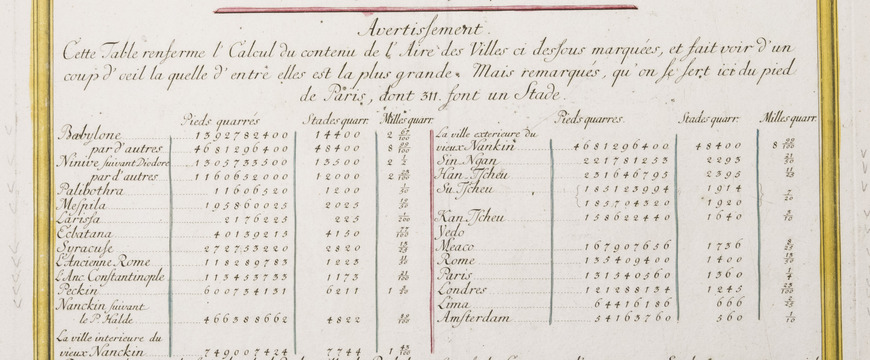 Avertissement.
Cette Table renferme l'Calcul du contenu de l'Aire des Villes ci dessous marquées, et fait voir d'un
coup d'oeil la quelle d'entre elles est la plus grande. Mais remarqués, qu'on se sert ici du pied
de Paris, dont 311. font un Stade.
Pieds quarrés Stades quarr. Milles quarr.
Babylone 1392782400 14400 2
par d'autres 4681296400 48400 8
Ninive suivant Diodore 1305733500 13500 2
par d'autres 1160652000 12000 2
Palibothra 11606520 1200
Mespila 195860025 2025
Larissa 2176225 225
Ecbatana 40139215 4150
Syracuse 272753220 2820
l'Ancienne Rome 118289783 1223
l'Anc Constantinople 113453733 1173
Peckin 600734131 6211 1
Nanckin suivant
le P. Halde 466388662 4822
La ville interieure du
vieux Nanckin 749007424 7744 1
Pieds quarres Stades quarr. Milles quarr.
La ville exterieure du
vieux Nankin 4681296400 48400 8
Sin Ngan 221781253 2293
Han Tscheu 231646795 2395
Su Tscheu 185123994 1914
185794320 1920
Kan Tscheu 158622440 1640
Yedo
Meaco 167907656 1736
Rome 135409400 1400
Paris 131540560 1360 1/4
Londres 121288134 1245
Lima 64416186 666
Amsterdam 54163760 560